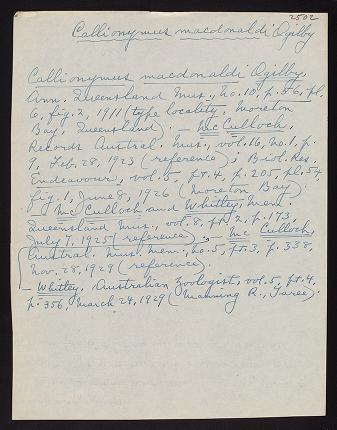 2502
Callionymus macdonaldi Ogilby
Callionymus macdonaldi Ogilby,
Ann. Queensland Mus., no. 10, p. 56, pl.
6, fig. 2, 1911 (type locality, Moreton
Bay, Queensland). — McCulloch,
Records Austral. Mus., vol. 14, no. 1, p.
9, Feb. 28, 1923 (reference); Biol. Res.
Endeavour, vol. 5, pt. 4, p. 205, pl. 54,
fig. 1, June 8, 1926 (Moreton Bay).
— McCulloch and Whitley, Mem.
Queensland Mus., vol. 8, pt. 2, p. 173,
July 7, 1925 (reference). — McCulloch,
Austral. Mus. Mem., no. 5, pt. 3, p. 338,
Nov. 28, 1929 (reference).
— Whitley, Australian Zoologist, vol. 5, pt. 4,
p. 356, March 24, 1929 (Manning R., Taree).